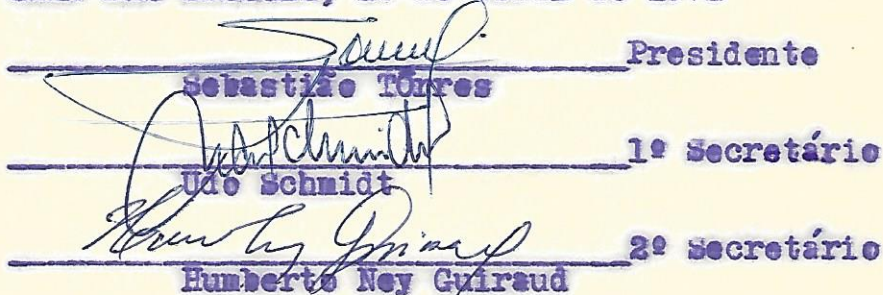 Presidente
Sebastião Tôrres
1º Secretário
Udo Schmidt
2º Secretário
Humberto Ney Guiraud